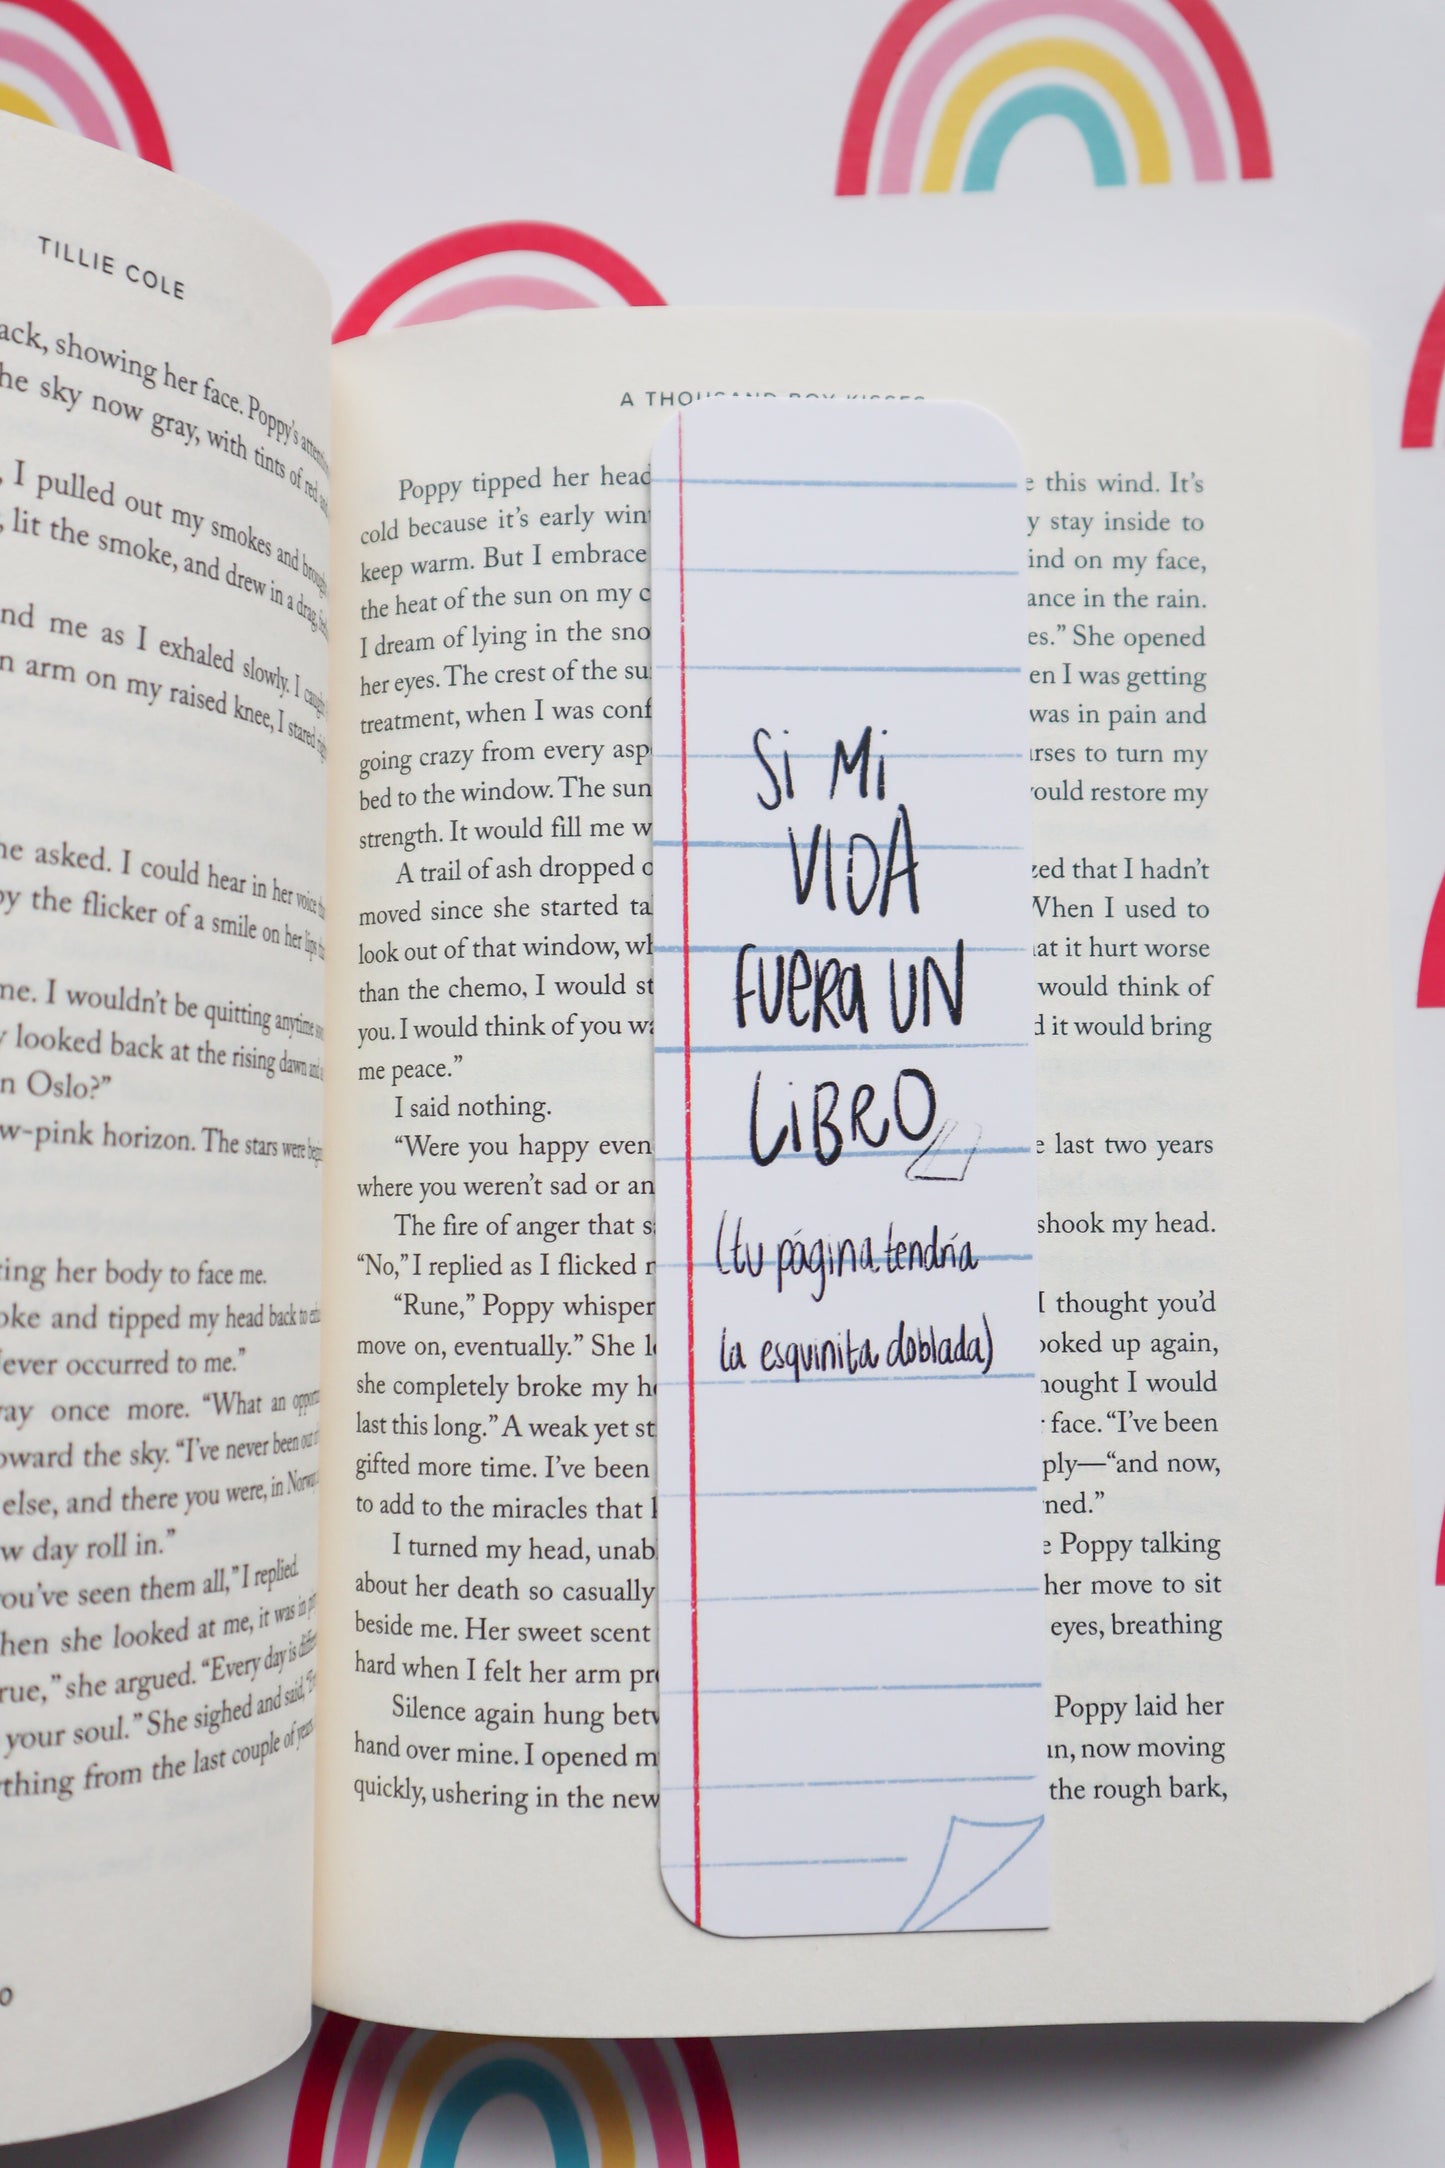 TILLIE COLE
ack, showing her face. Poppy's
he sky now gray, with tints of red
, I pulled out my smokes and
, lit the smoke, and drew in a drag,
nd me as I exhaled slowly. I
n arm on my raised knee, I stared
he asked. I could hear in her voice
by the flicker of a smile on her lips
me. I wouldn't be quitting anytime
y looked back at the rising dawn
n Oslo?”
w-pink horizon. The stars were
ring her body to face me.
oke and tipped my head back to
ever occurred to me.”
ay once more. “What an
oward the sky. “I've never been
else, and there you were, in
w day roll in.”
ou've seen them all,” I replied.
hen she looked at me, it was in
rue,” she argued. “Every day is
your soul.” She sighed and said,
thing from the last couple of years
A THOUSAND BOY KISSES
Poppy tipped her head
e this wind. It's
cold because it's early win
y stay inside to
keep warm. But I embrace
ind on my face,
the heat of the sun on my c
ance in the rain.
I dream of lying in the sno
es.” She opened
her eyes. The crest of the su
en I was getting
treatment, when I was conf
was in pain and
going crazy from every asp
rses to turn my
bed to the window. The sun
ould restore my
strength. It would fill me w
A trail of ash dropped o
zed that I hadn't
moved since she started ta
When I used to
look out of that window, wh
at it hurt worse
than the chemo, I would st
would think of
you. I would think of you wa
d it would bring
me peace.”
I said nothing.
“Were you happy even
e last two years
where you weren't sad or an
The fire of anger that s
shook my head.
“No,” I replied as I flicked
“Rune,” Poppy whisper
I thought you'd
move on, eventually.” She l
ooked up again,
she completely broke my h
hought I would
last this long.” A weak yet st
face. “I've been
gifted more time. I've been
ply—“and now,
to add to the miracles that
ned.”
I turned my head, unab
e Poppy talking
about her death so casually
her move to sit
beside me. Her sweet scent
eyes, breathing
hard when I felt her arm pr
Silence again hung betw
Poppy laid her
hand over mine. I opened m
un, now moving
quickly, ushering in the new
the rough bark,
Si Mi
VIDA
FUERA UN
LiBRO
(tu página tendría
la esquinita doblada)